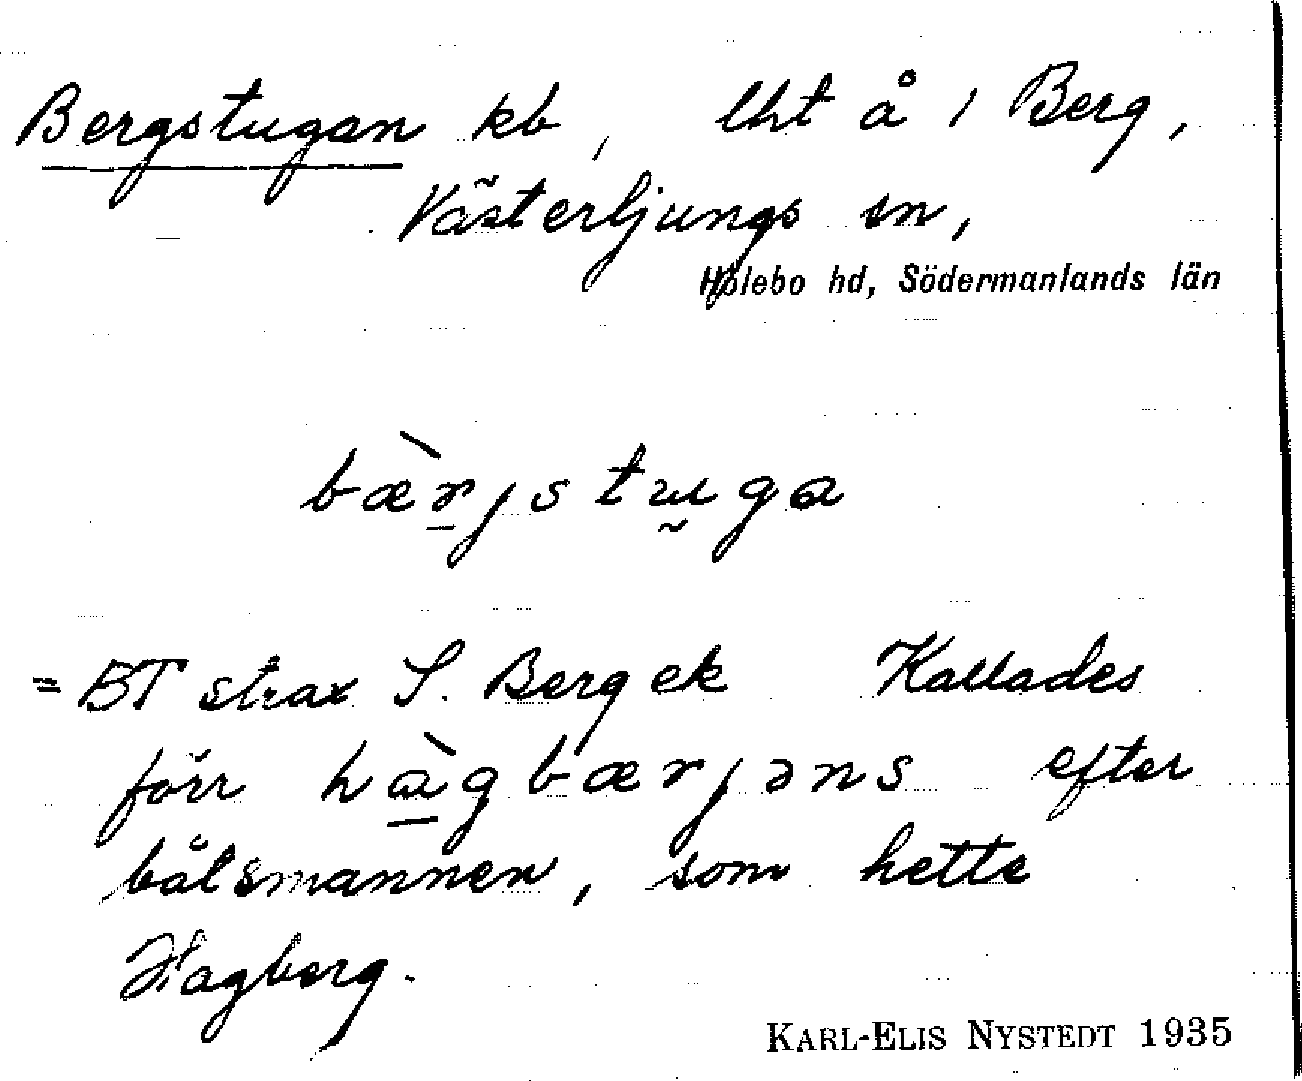 Bergstugan kb, lht å 1 Berg,
Västerljungs sn,
Hölebo hd, Södermanlands län
bæ̀rjstuga
= BT strax S. Berg ek Kallades
förr hàgbærjəns efter
båtsmannen, som hette
Hagberg.
KARL-ELIS NYSTEDT 1935